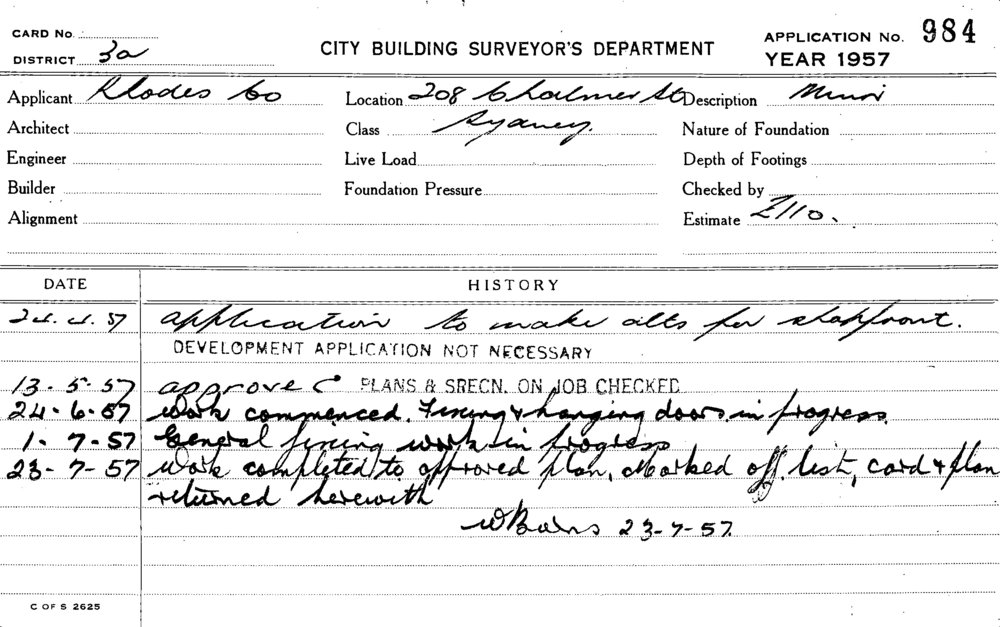 CARD No.
DISTRICT 3a
CITY BUILDING SURVEYOR'S DEPARTMENT
APPLICATION No. 984
YEAR 1957
Applicant Rhodes Co Location 208 Chalmer St Description Minor
Architect Class Sydney. Nature of Foundation
Engineer Live Load Depth of Footings
Builder Foundation Pressure Checked by
Alignment Estimate £110.
DATE HISTORY
24.4.57 application to make alts for shopfront.
DEVELOPMENT APPLICATION NOT NECESSARY
13-5-57 approved PLANS & SPECN. ON JOB CHECKED
24-6-57 Work commenced. Fixing & hanging doors in progress.
1-7-57 General fixing work in progress
23-7-57 Work completed to approved plan, Marked off list, card & plan
returned herewith
23-7-57.
C OF S 2625